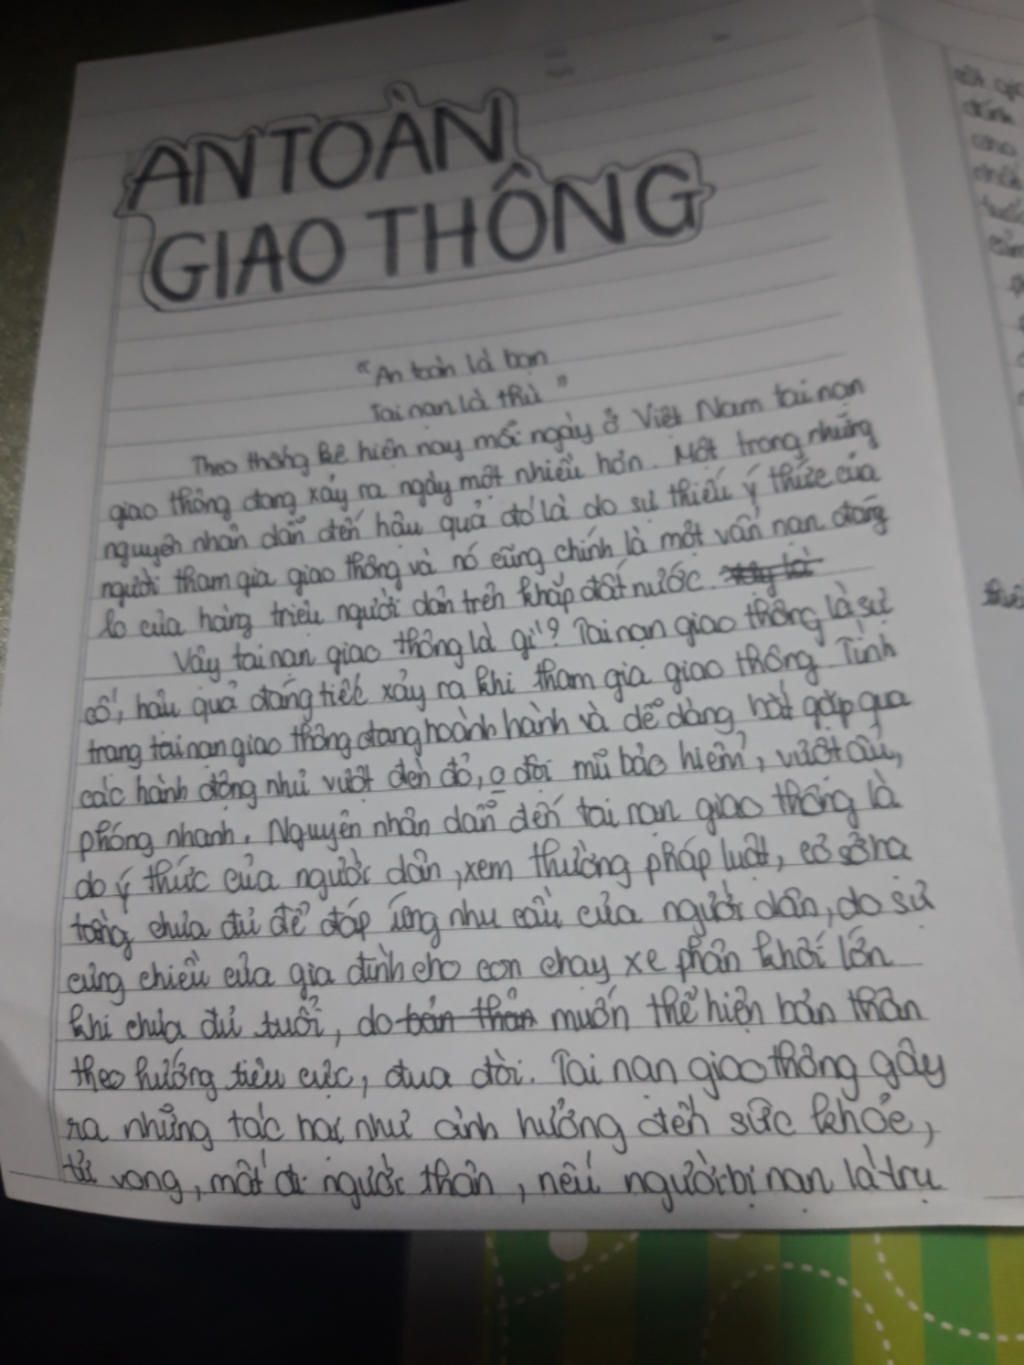 AN TOÀN
GIAO THÔNG
"An toàn là bạn
Tai nạn là thù"
Theo thống kê hiện nay mỗi ngày ở Việt Nam tai nạn
giao thông đang xảy ra ngày một nhiều hơn. Một trong những
nguyên nhân dẫn đến hậu quả đó là do sự thiếu ý thức của
người tham gia giao thông và nó cũng chính là một vấn nạn đáng
lo của hàng triệu người dân trên khắp đất nước.
Vậy tai nạn giao thông là gì? Tai nạn giao thông là sự
cố, hậu quả đáng tiếc xảy ra khi tham gia giao thông. Tình
trạng tai nạn giao thông đang hoành hành và dễ dàng bắt gặp qua
các hành động như vượt đèn đỏ, o đội mũ bảo hiểm, vượt ẩu,
phóng nhanh. Nguyên nhân dẫn đến tai nạn giao thông là
do ý thức của người dân, xem thường pháp luật, cơ sở hạ
tầng chưa đủ để đáp ứng nhu cầu của người dân, do sự
cưng chiều của gia đình cho con chạy xe phân khối lớn
khi chưa đủ tuổi, do bản thân muốn thể hiện bản thân
theo hướng tiêu cực, đua đòi. Tai nạn giao thông gây
ra những tác hại như ảnh hưởng đến sức khỏe,
tử vong, mất đi người thân, nếu người bị nạn là trụ